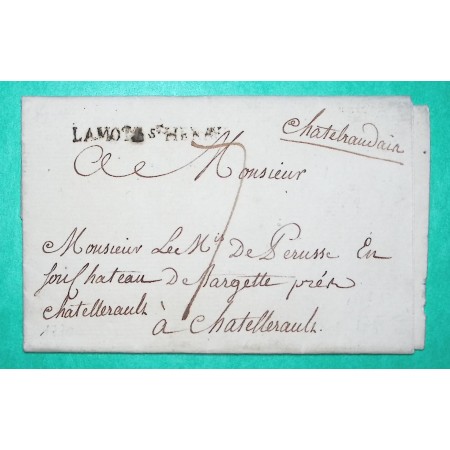 LAMOTE ST HERAY
Chatelraudain
A Monsieur
7
Monsieur Le Mis De Perusse En
son Chateau De Targette prés
Chatellerault
à Chatellerault.